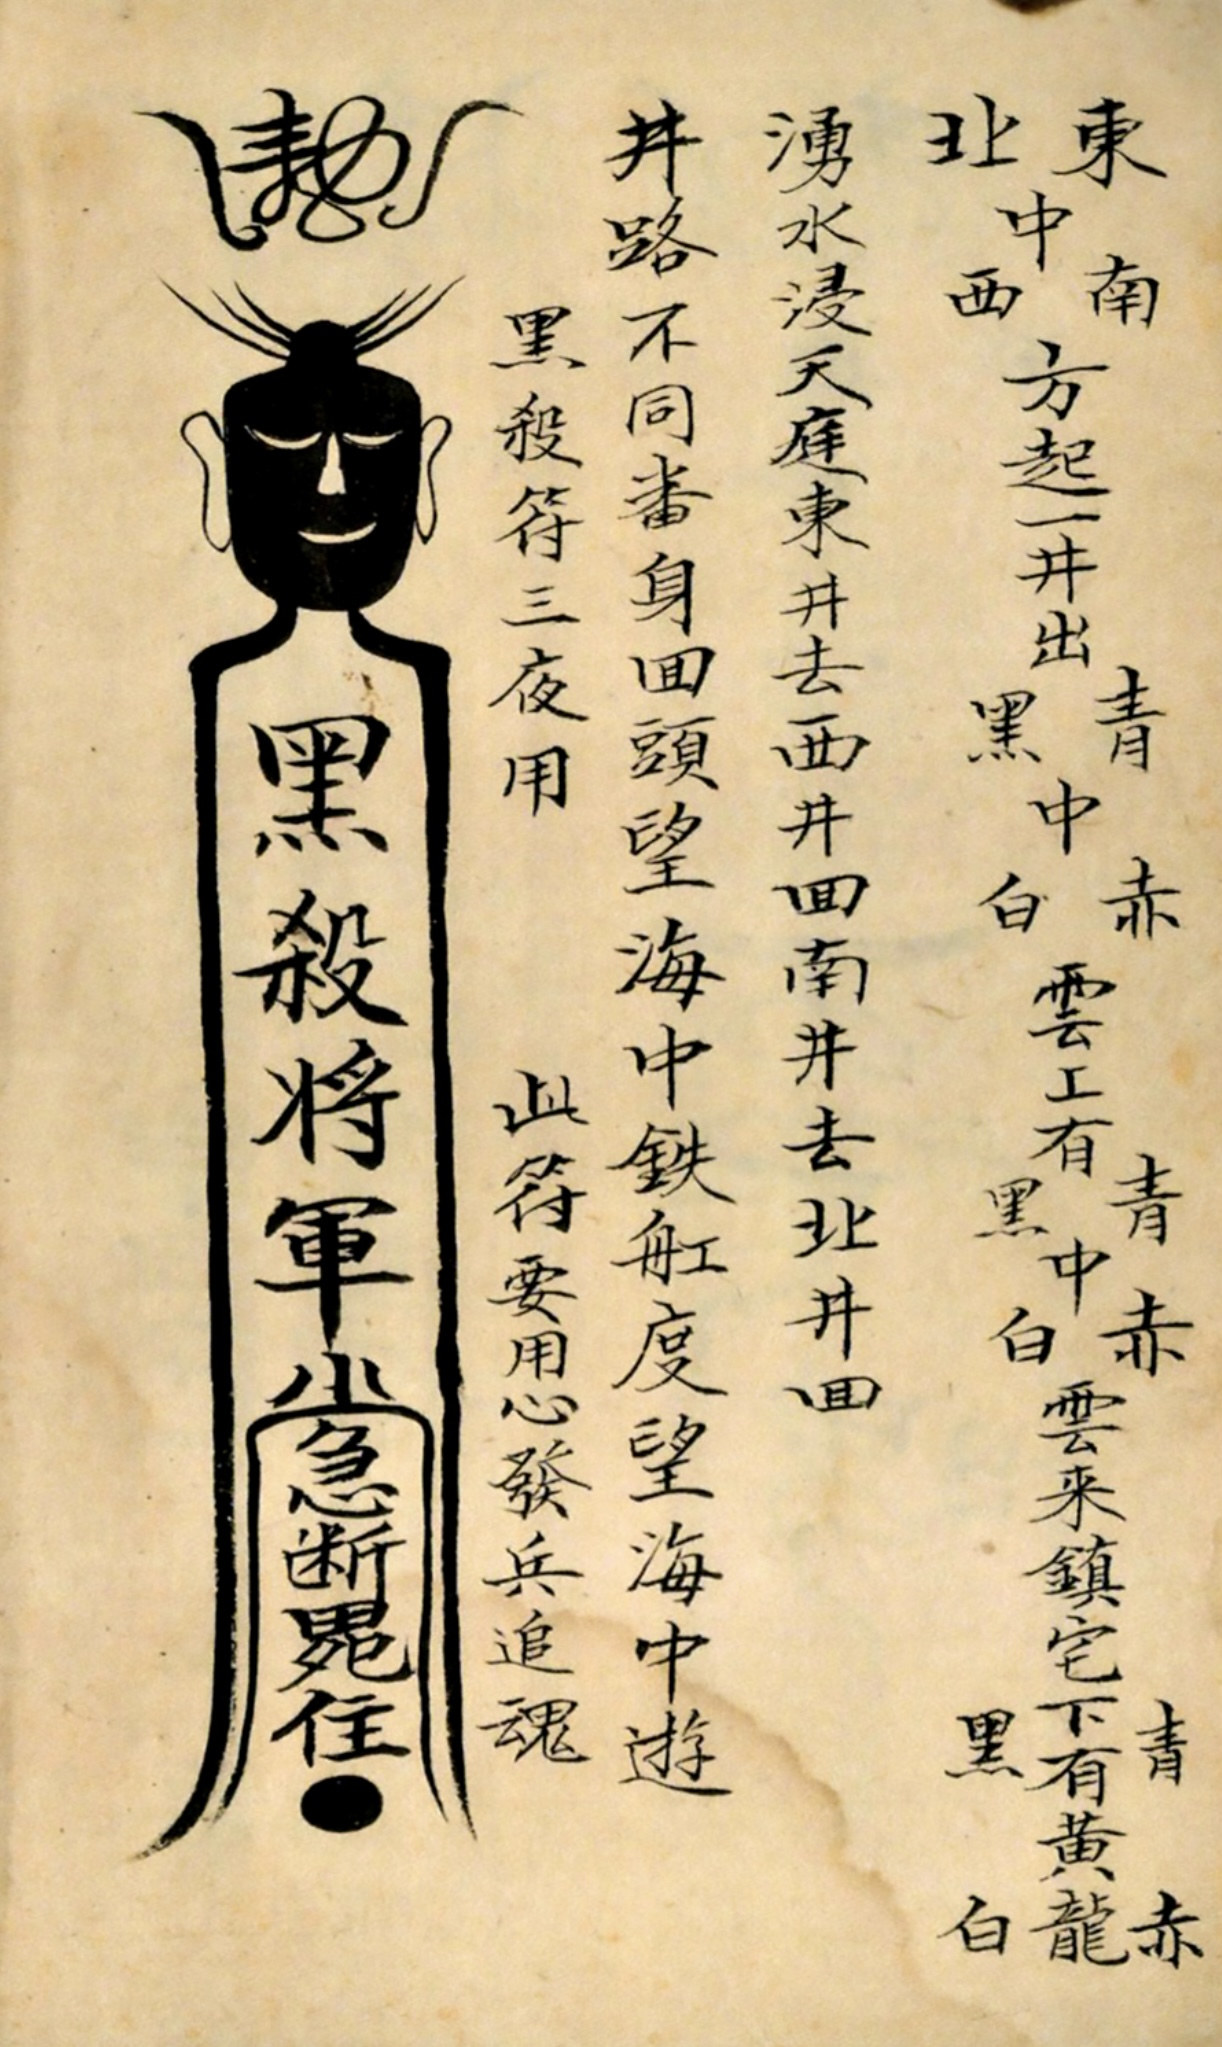 東南中西北方起一井出青赤中白黑雲上有青赤中白黑雲来鎮宅下有青赤黃白黑龍
湧水浸天庭東井去西井回南井去北井回
井路不同番身回頭望海中鉄舡度望海中遊
黑殺符三夜用 此符要用心發兵追魂
勅
黑殺将軍
急断
住